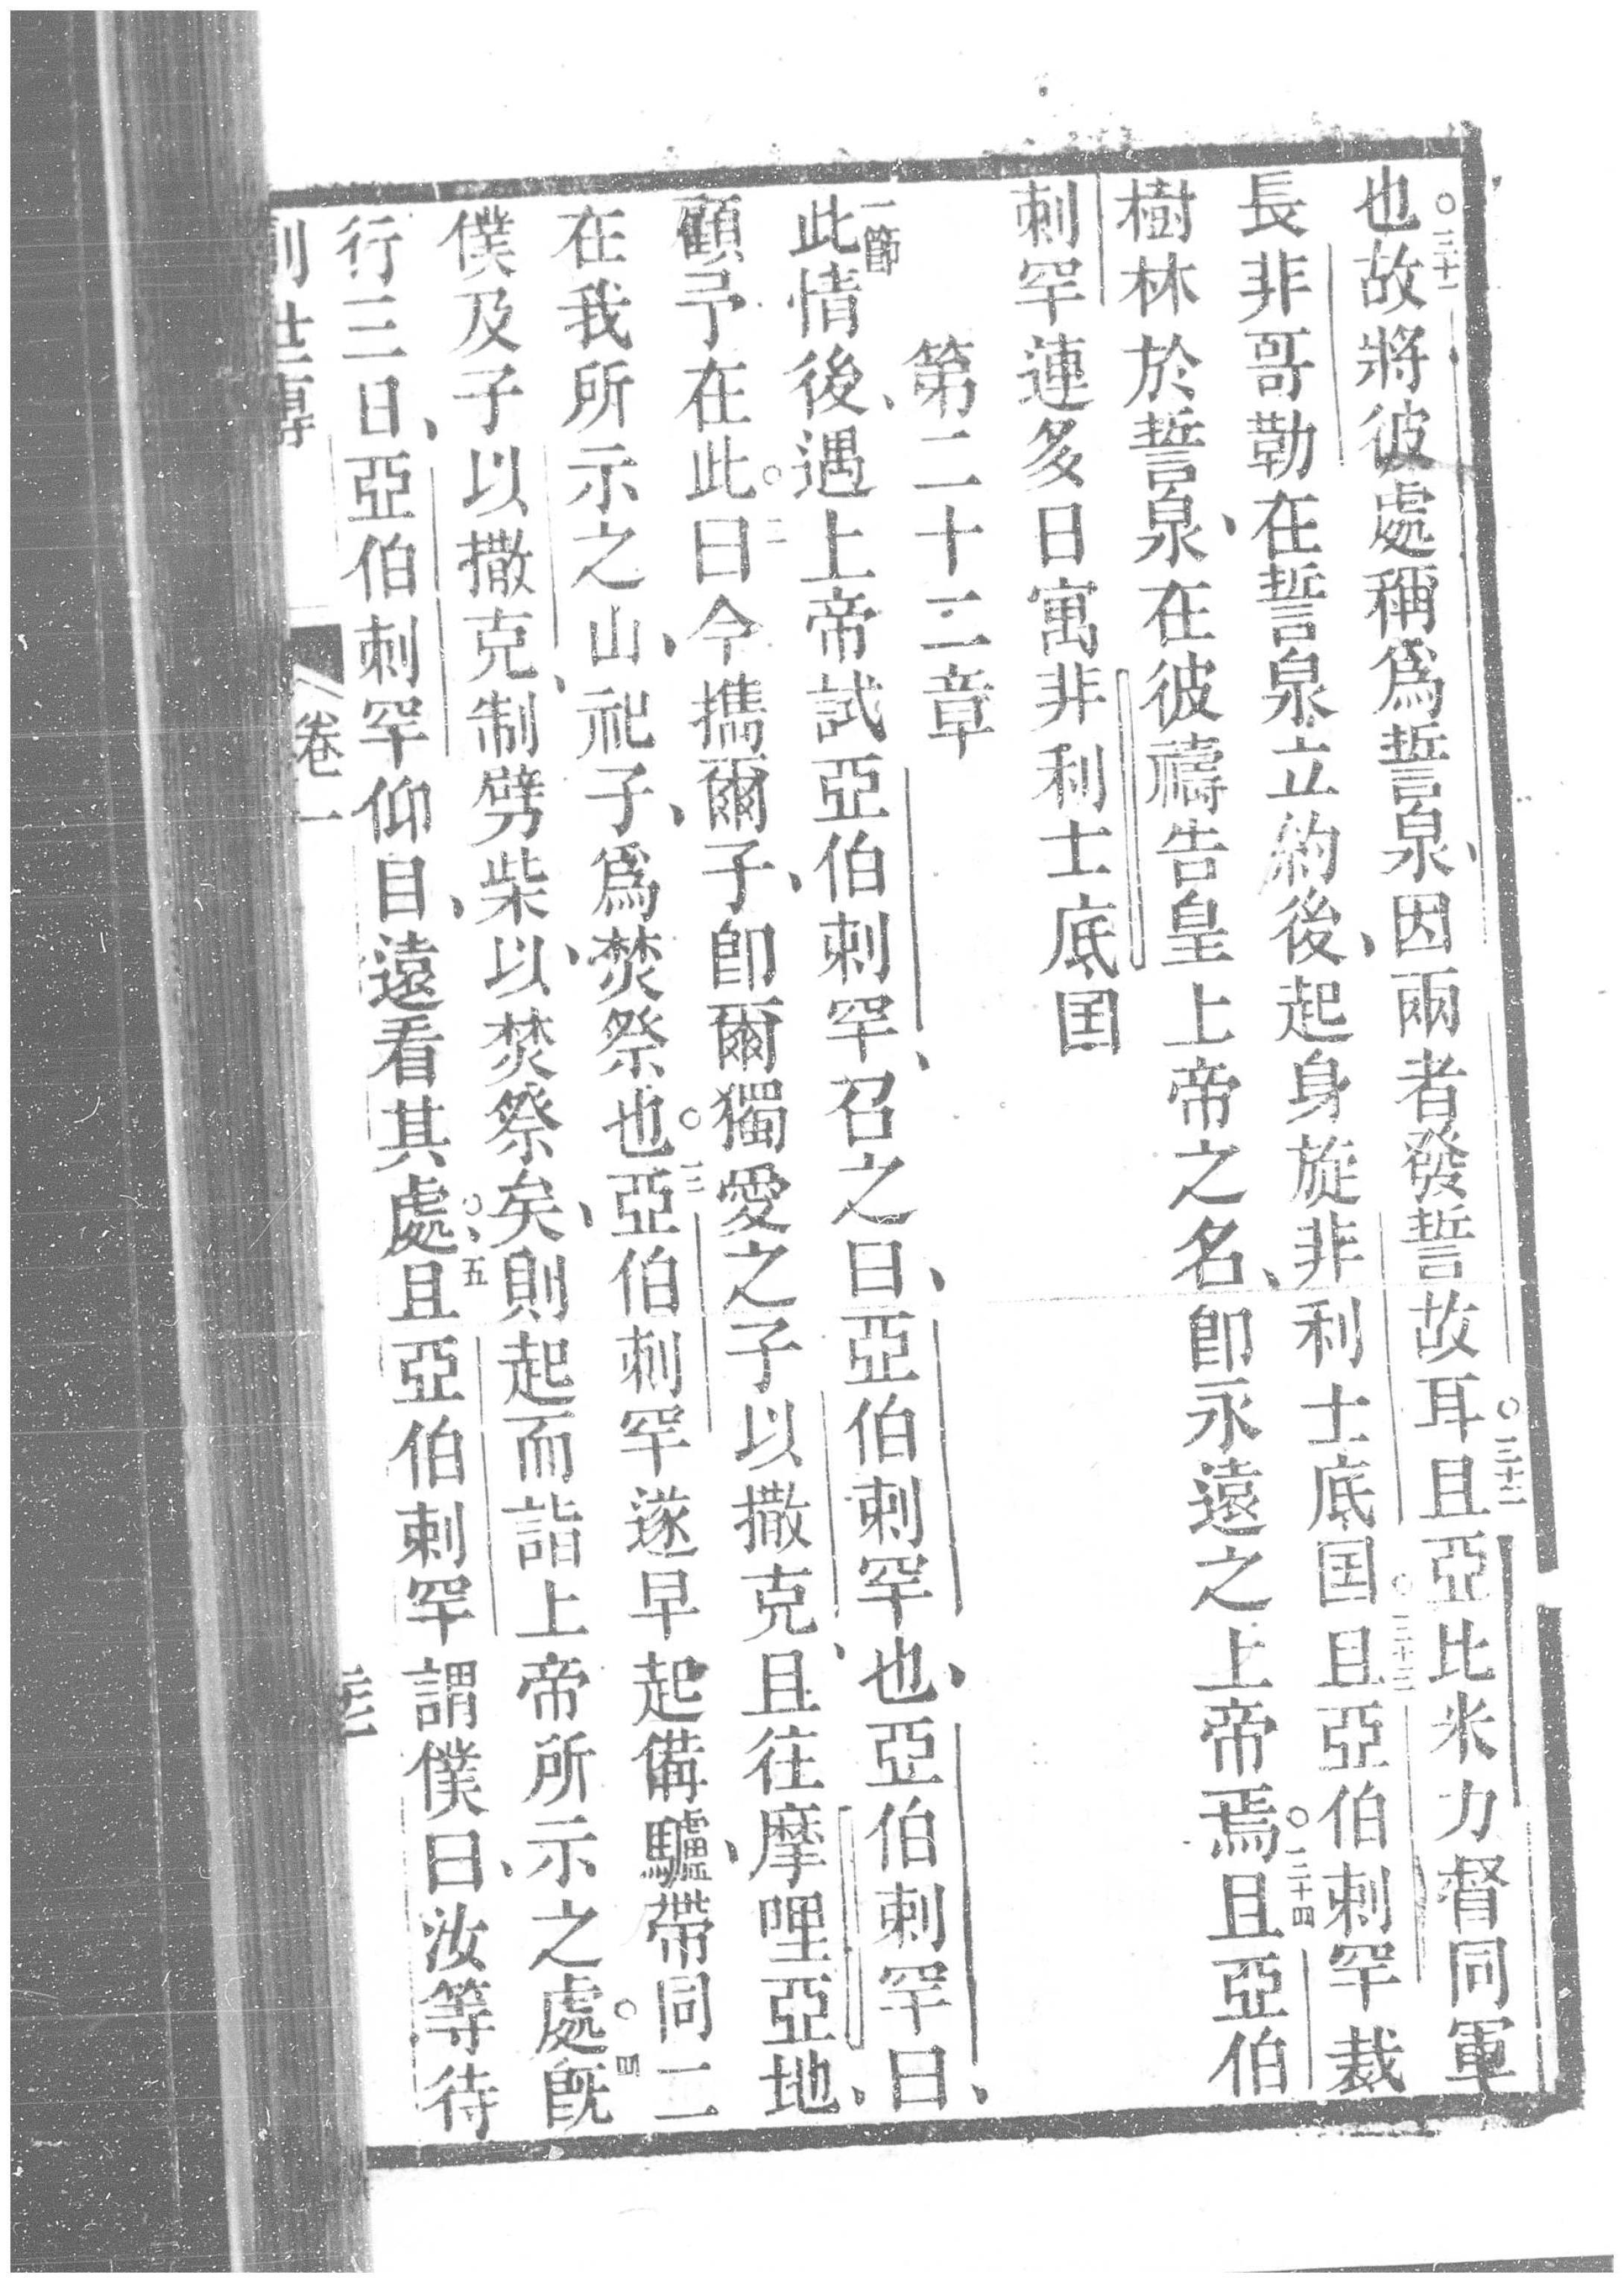 也○三十一故將彼處稱爲誓泉、因兩者發誓故耳○三十二且亞比米力督同軍
長非哥勒在誓泉立約後、起身旋非利士底囯○三十三且亞伯剌罕栽
樹林於誓泉、在彼禱告皇上帝之名、卽永遠之上帝焉○三十四且亞伯
剌罕連多日寓非利士底囯
第二十二章
一節此情後、遇上帝試亞伯剌罕、召之曰、亞伯剌罕也、亞伯剌罕曰、
顧予在此○二曰今擕爾子、卽爾獨愛之子以撒克、且往摩哩亞地、
在我所示之山、祀子、爲焚祭也○三亞伯剌罕遂早起備驢、帶同二
僕及子以撒克、制劈柴、以焚祭矣、則起而詣上帝所示之處○四旣
行三日、亞伯剌罕仰目、遠看其處○、五且亞伯剌罕謂僕曰、汝等待
卷一